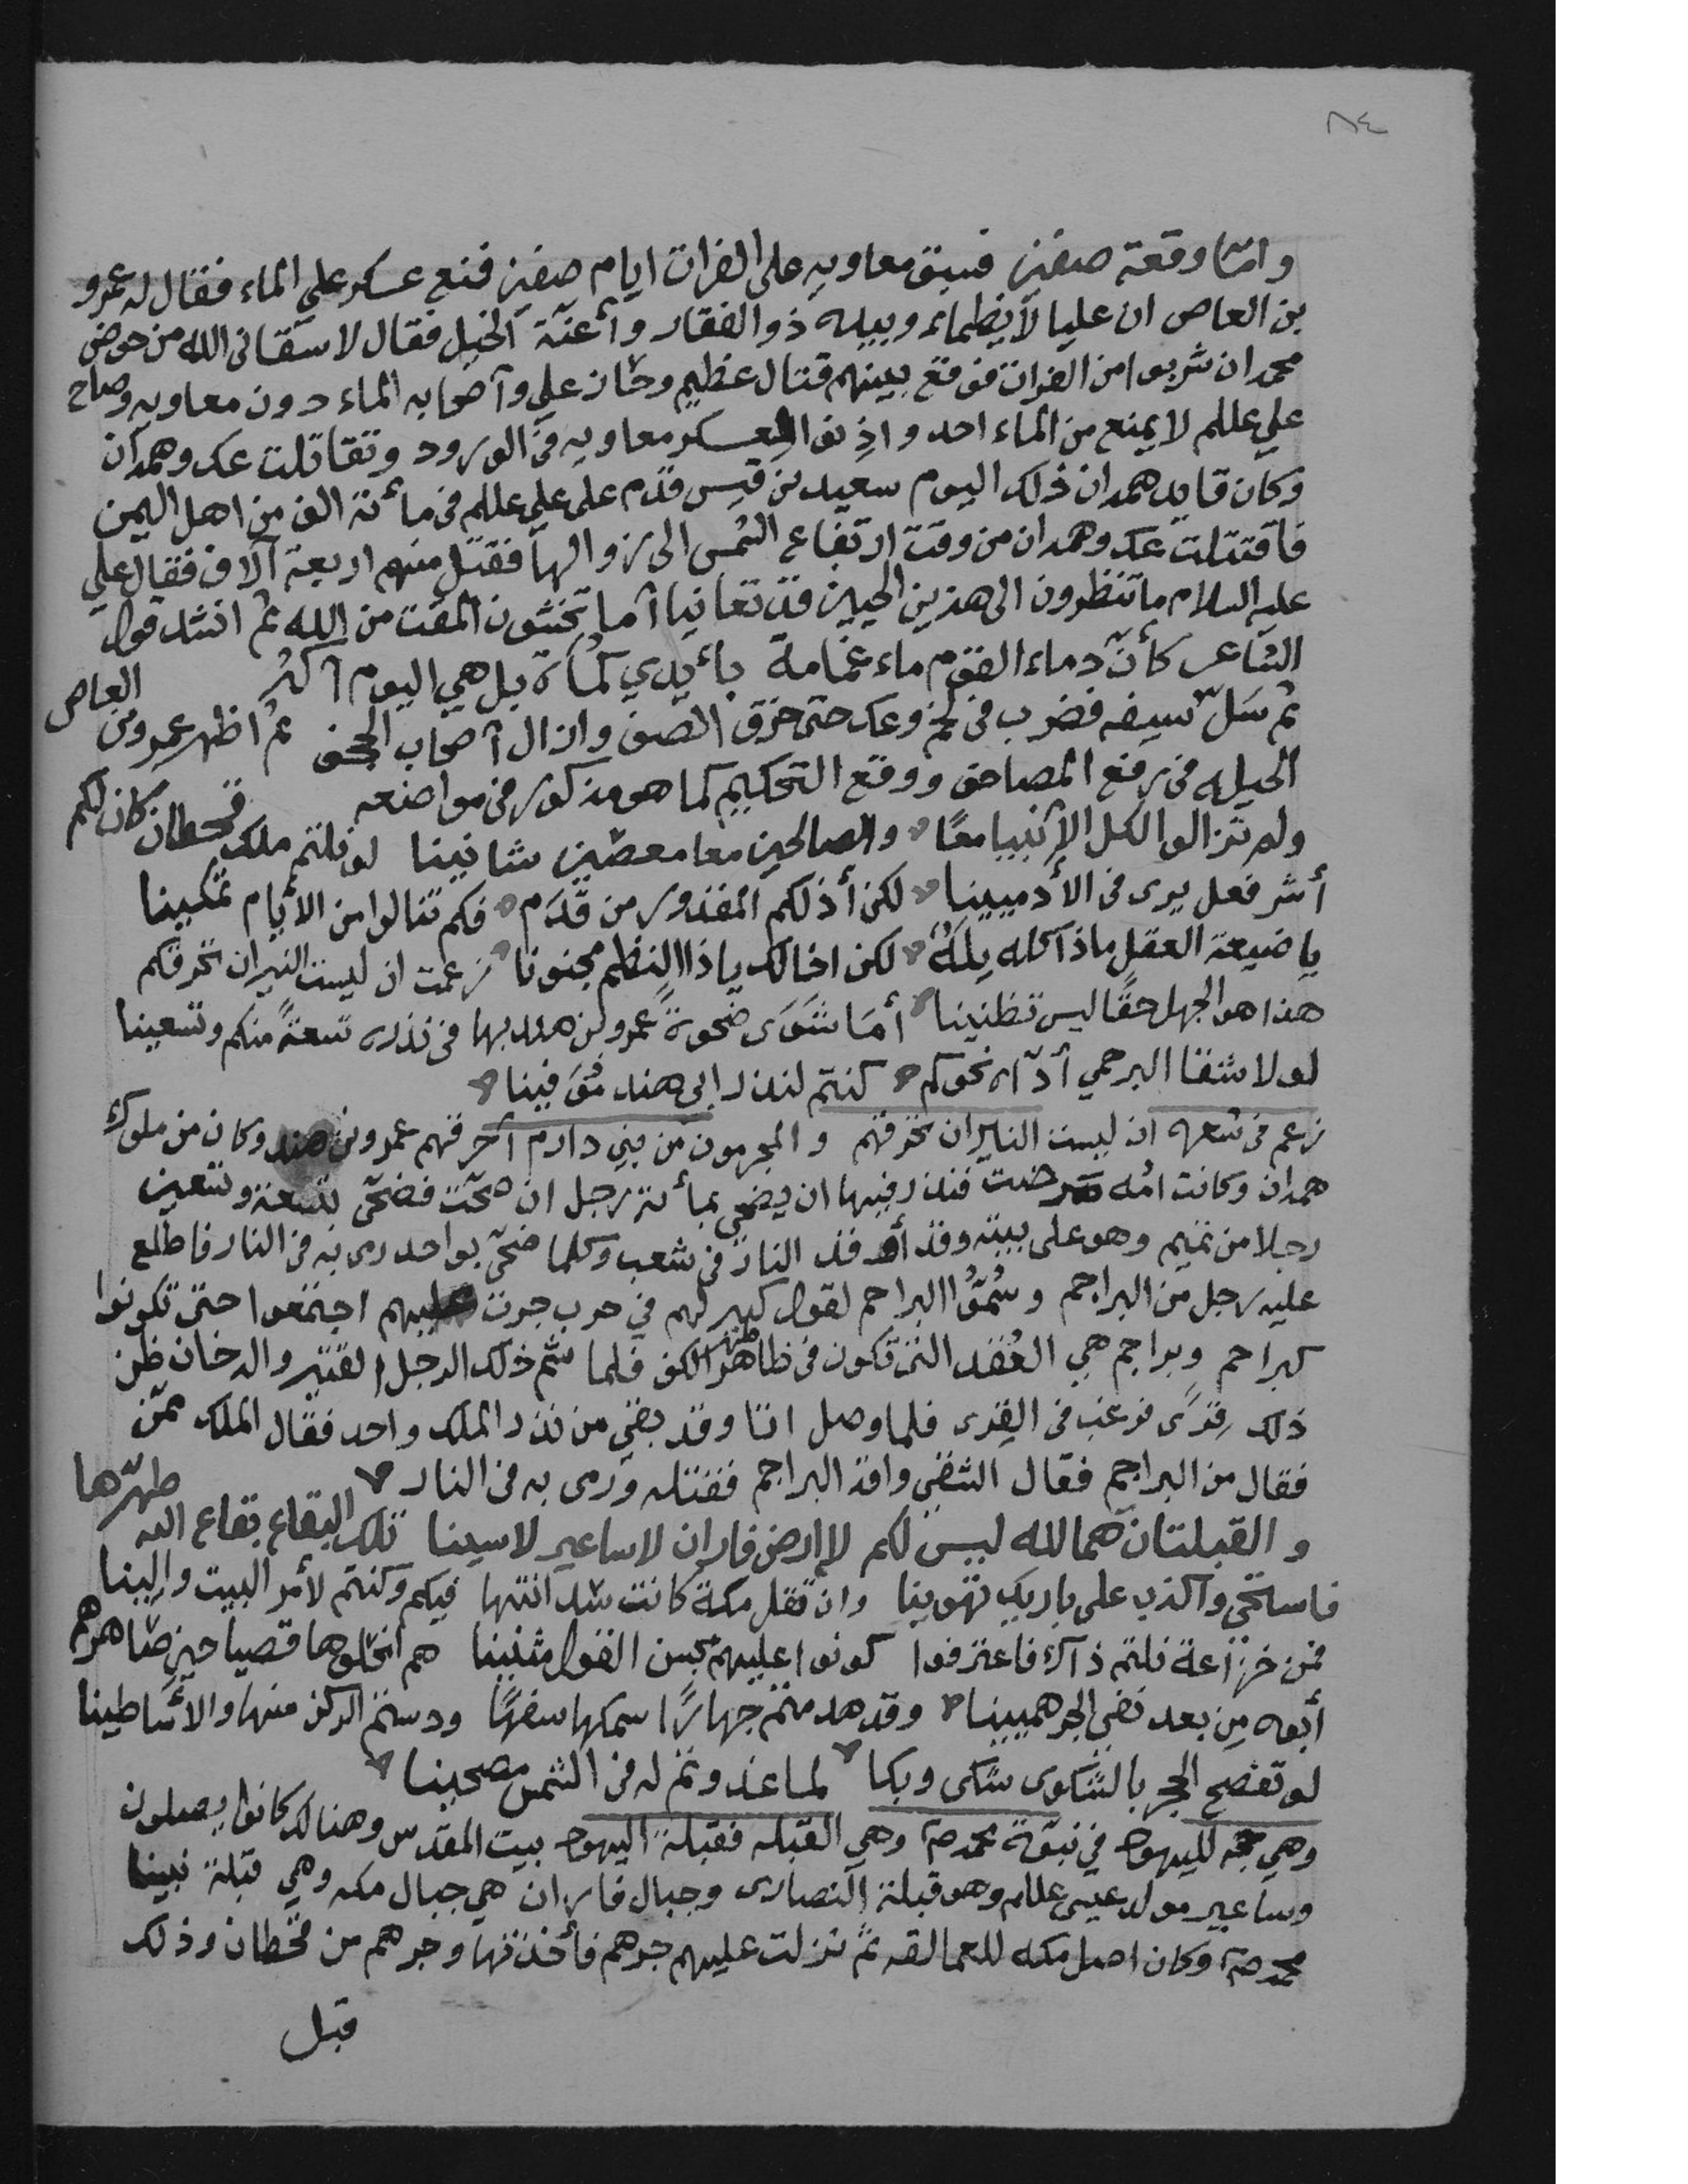 ٨٤
وامّا وقعة صفين فسبق معاويه على الفرات ايام صفين فمنع عسكر علي الماء فقال له عمرو
بن العاص ان عليا لا يظماء وبيده ذو الفقار وأعنّة الخيل فقال لا سقانى الله من حوض
محمد ان شربوا من الفرات فوقع بينهم قتال عظيم وحاز علي وآصحابه الماء دون معاويه وصاح
علي عللم لا يمنع من الماء احد واذِنوا لعسكر معاويه في الورود وتقاتلت عك وهمدان
وكان قايد همدان ذلك اليوم سعيد بن قيس قدم على علي عللم في مأئة الف من اهل اليمن
فاقتتلت عك وهمدان من وقت ارتفاع الشمس الى زوالها فقتل منهم اربعة آلاف فقال علي
عليه السلام ما تنظرون الى هذين الحيين قد تفانيا آما تخشون المقت من الله ثم انشد قول
الشاعر كأنّ دماء القوم ماء غمامة بأيدي كماة بل هي اليوم آكثر
ثم سَلّ سيفه فضرب في لخم وعك حتى خرق الصف وازال آصحاب الجحف ثم اظهر عمرو بن العاص
الحيله في رفع المصاحف ووقع التحكيم كما هو مذكور في مواضعه
ولم تزالوا لكل الانبيا معًا والصالحين معا معصّين شانيينا لو نلتم ملك قحطان كان لكم
أشر فعل يرى في الأدميينا لكن أذلكم المقدور من قدَم فكم تنالوا من الأيام تمكينا
يا ضيعة العقل ماذا كله بِلَهٌ لكن اخالك ياذا النظم مجنونا زعمت ان ليست النيران تحرقكم
هذا هو الجهل حقًا ليس تظنينا أمَا شَوَى ضحوةً عمرو بن هند بها في نذره تسعةً منكم وتسعينا
لولا شقا البرجمي أدّاه نحوكم كنتم لنذر ابى هند مُوَفينا
زعم في شعره ان ليست النايران تحرقهم والمجرمون من بني دارم آحرقهم عمرو بن هند وكان من ملوك
همدان وكانت امّه مرضت فنذر فيها ان يضحي بمأئة رجل ان صحّت فضحّى بتسعة وتسعين
رجلا من تميم وهو على بيته وقد أوقد النار في شعب وكلما ضحّى بواحد رمى به في النار فاطلع
عليه رجل من البراجم وسُمّوُا البراجم لقول كبير لهم في حرب جرت عليهم اجتمعوا حتى تكونوا
كبراجم وبراجم هي العُقد التي تكون في ظاهر الكف فلما شم ذلك الرجل القتير والدخان ظن
ذلك قِرًى فرغب في القِرى فلما وصل اتا وقد بقي من نذر الملك واحد فقال الملك ممّن
فقال من البراجم فقال الشقي وافد البراجم فقتله ورمى به في النار
والقبلتان هما لله ليس لكم لا ارض فاران لا ساعير لا سينا تلك البقاع بقاع الله طهّرها
فاستحي والكذب على باريك تهوينا وان تقل مكة كانت سدانتها فيكم وكنتم لأمر البيت والينا
فمن خزاعة نلتم ذاك فاعترفوا كونوا عليهم بحسن القول مثنينا هم انحلوها قصيا حين صاهرهم
أبوه من بعد نفي الجرهميينا وقد هدمتم جهارًا سمكها سفهًا ودستم الركن منها والاساطينا
لو تفصح الحجر بالشكوى شكى وبكا لما غدوتم له في الشمس مصحينا
وهي حجه لليهود في نبوّة محمد صلم وهي القبله فقبلة اليهود بيت المقدس وهنالك كانوا يصلون
وساعير مولد عيسى عللم وهو قبلة النصارى وجبال فاران هي جبال مكه وهي قبلة نبينا
محمد صلم وكان اصل مكه للعمالقه ثم نزلت عليهم جرهم فأخذتها وجرهم من قحطان وذلك
قبل